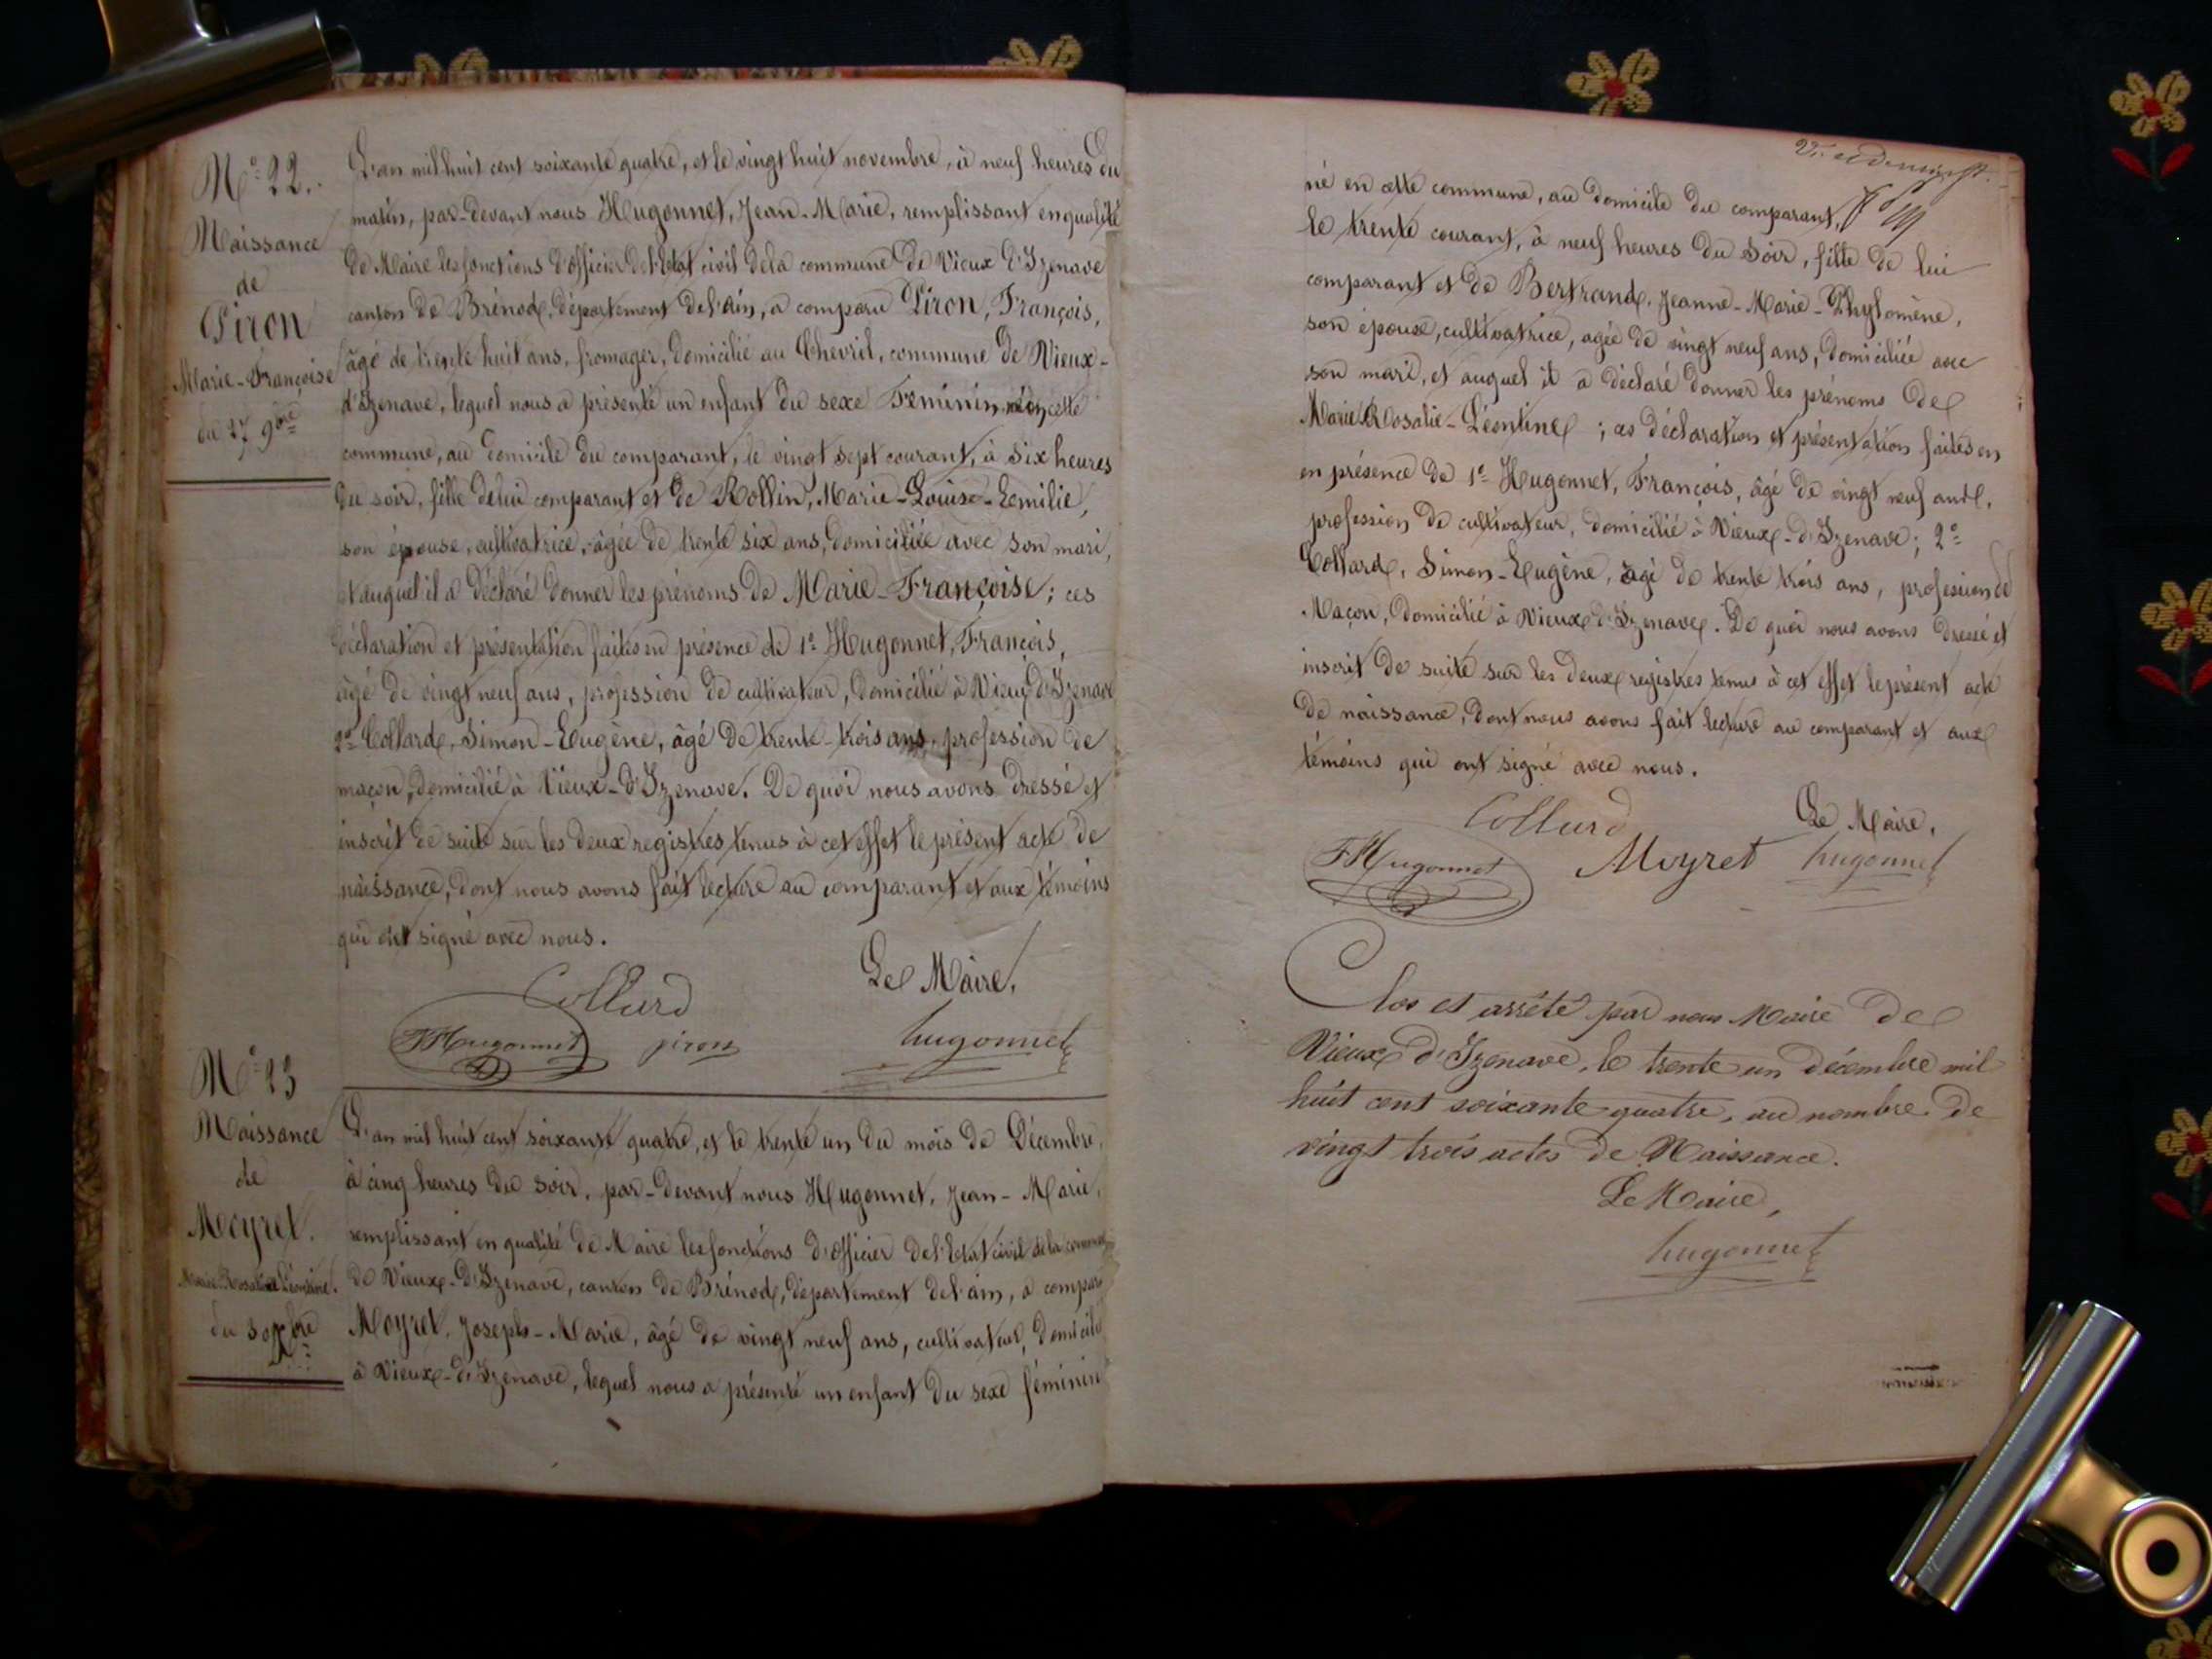 N° 22.
Naissance
de
Piron
Marie-Françoise
du 27 9bre
L'an mil huit cent soixante quatre, et le vingt huit novembre, à neuf heures du
matin, par-devant nous Hugonnet, Jean-Marie, remplissant en qualité
de Maire les fonctions d'officier de l'Etat civil de la commune de Vieux d'Izenave
canton de Brénod, département de l'ain, a comparu Piron, François,
âgé de trente huit ans, fromager, domicilié au Chevril, commune de Vieux-
d'Izenave, lequel nous a présenté un enfant du sexe Féminin né en cette
commune, au domicile du comparant, le vingt sept courant, à six heures
du soir, fille de lui comparant et de Rollin, Marie-Louise-Emilie,
son épouse, cultivatrice, âgée de trente six ans, domiciliée avec son mari,
et auquel il a déclaré donner les prénoms de Marie-Françoise; ces
déclaration et présentation faites en présence de 1° Hugonnet, François,
âgé de vingt neuf ans, profession de cultivateur, domicilié à Vieux d'Izenave
2° Collard, Simon-Eugène, âgé de trente-trois ans, profession de
maçon, domicilié à Vieux-d'Izenave. De quoi nous avons dressé et
inscrit de suite sur les deux registres tenus à cet effet le présent acte de
naissance, dont nous avons fait lecture au comparant et aux témoins
qui ont signé avec nous.
Le Maire,
Collard
FHugonnet piron hugonnet
N° 23
Naissance
de
Moyret.
Marie-Rosalie-Léontine.
du 30 Xbre
L'an mil huit cent soixante quatre, et le trente un du mois de Décembre,
à cinq heures du soir, par-devant nous Hugonnet, Jean-Marie,
remplissant en qualité de Maire les fonctions d'officier de l'Etat civil de la commune
de Vieux-d'Izenave, canton de Brénod, département de l'ain, a comparu
Moyret, Joseph-Marie, âgé de vingt neuf ans, cultivateur, domicilié
à Vieux-d'Izenave, lequel nous a présenté un enfant du sexe féminin
né en cette commune, au domicile du comparant,
le trente courant, à neuf heures du soir, fille de lui
comparant et de Bertrand, Jeanne-Marie-Phylomène,
son épouse, cultivatrice, agée de vingt neuf ans, domiciliée avec
son mari, et auquel il a déclaré donner les prénoms de
Marie-Rosalie-Léontine; ces déclaration et présentation faites en
en présence de 1° Hugonnet, François, âgé de vingt neuf ans,
profession de cultivateur, domicilié à Vieux-d'Izenave; 2°
Collard, Simon-Eugène, agé de trente trois ans, profession de
Maçon, domicilié à Vieux d'Izenave. De quoi nous avons dressé et
inscrit de suite sur les deux registres tenus à cet effet le présent acte
de naissance, dont nous avons fait lecture au comparant et aux
témoins qui ont signé avec nous.
Collard Le Maire,
FHugonnet Moyret hugonnet
Clos et arrêté par nous Maire de
Vieux d'Izenave, le trente un décembre mil
huit cent soixante quatre, au nombre de
vingt trois actes de Naissance.
Le Maire,
hugonnet